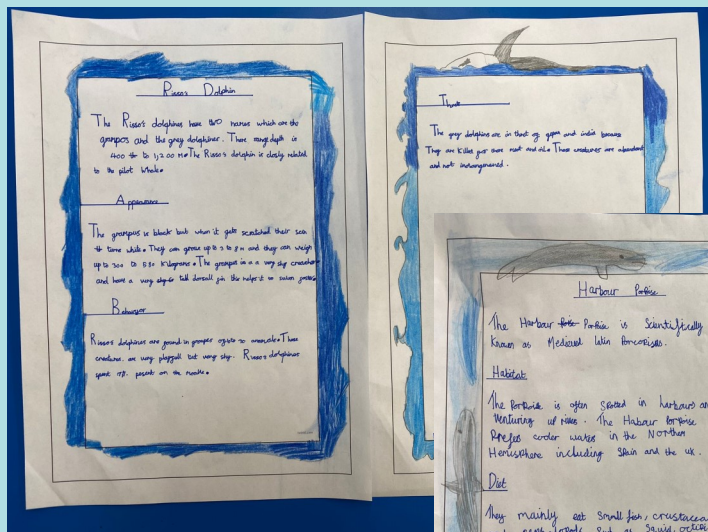 Rissos Dolphin
The Risso's dolphines have two names which are the
grampos and the grey dolphines. There range depth is
400 to 1,200 M. The Risso's dolphin is closly related
to the pilot Whale.
Appearance
The grampus is black but when it gets scratched their
time white. They can grow up to 3 to 8 M and they can weigh
up to 300 to 530 Kilograms. The grampus is a a very shy
and have a very tall dorsall fin this helps it to swim
Behavior
Rissos dolphines are found in groups of to 30 animals. These
creatures are very playfull but very shy. Risso's dolphines
present on the
Threat
The grey dolphins are in threat of japan and india because
They are killed for there meat and oil. These creatures are abundant
and not indangerened.
Harbour Porise
The Harbour Porise is Scientifically
Known as Medieval latin Porcopiscus.
Habitat
The Porpoise is often Spotted in harbours
Venturing up rivers. The Habour Porpoise
Prefes cooler waters in the Northen
Hemisphere including Spain and the uk.
Diet
They mainly eat Small fish, crustacea
Squid, octop